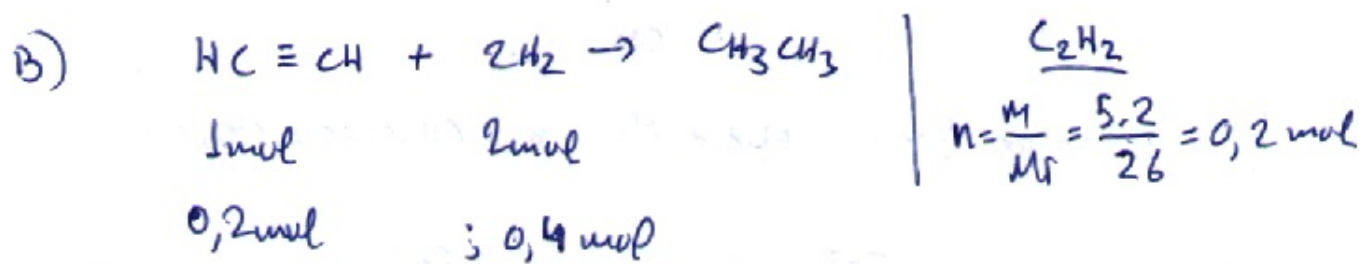 B) HC ≡ CH + 2H2 → CH3CH3
1mol 2mol
0,2mol ; 0,4 mol
C2H2
n = M/Mr = 5.2/26 = 0,2 mol